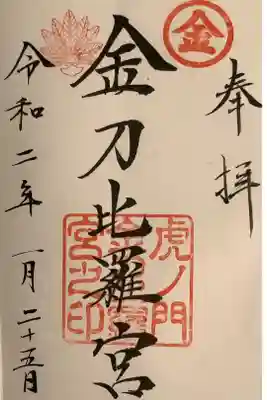 奉拝
金
金刀比羅宮
虎ノ門
宮之印
令和二年一月二十五日